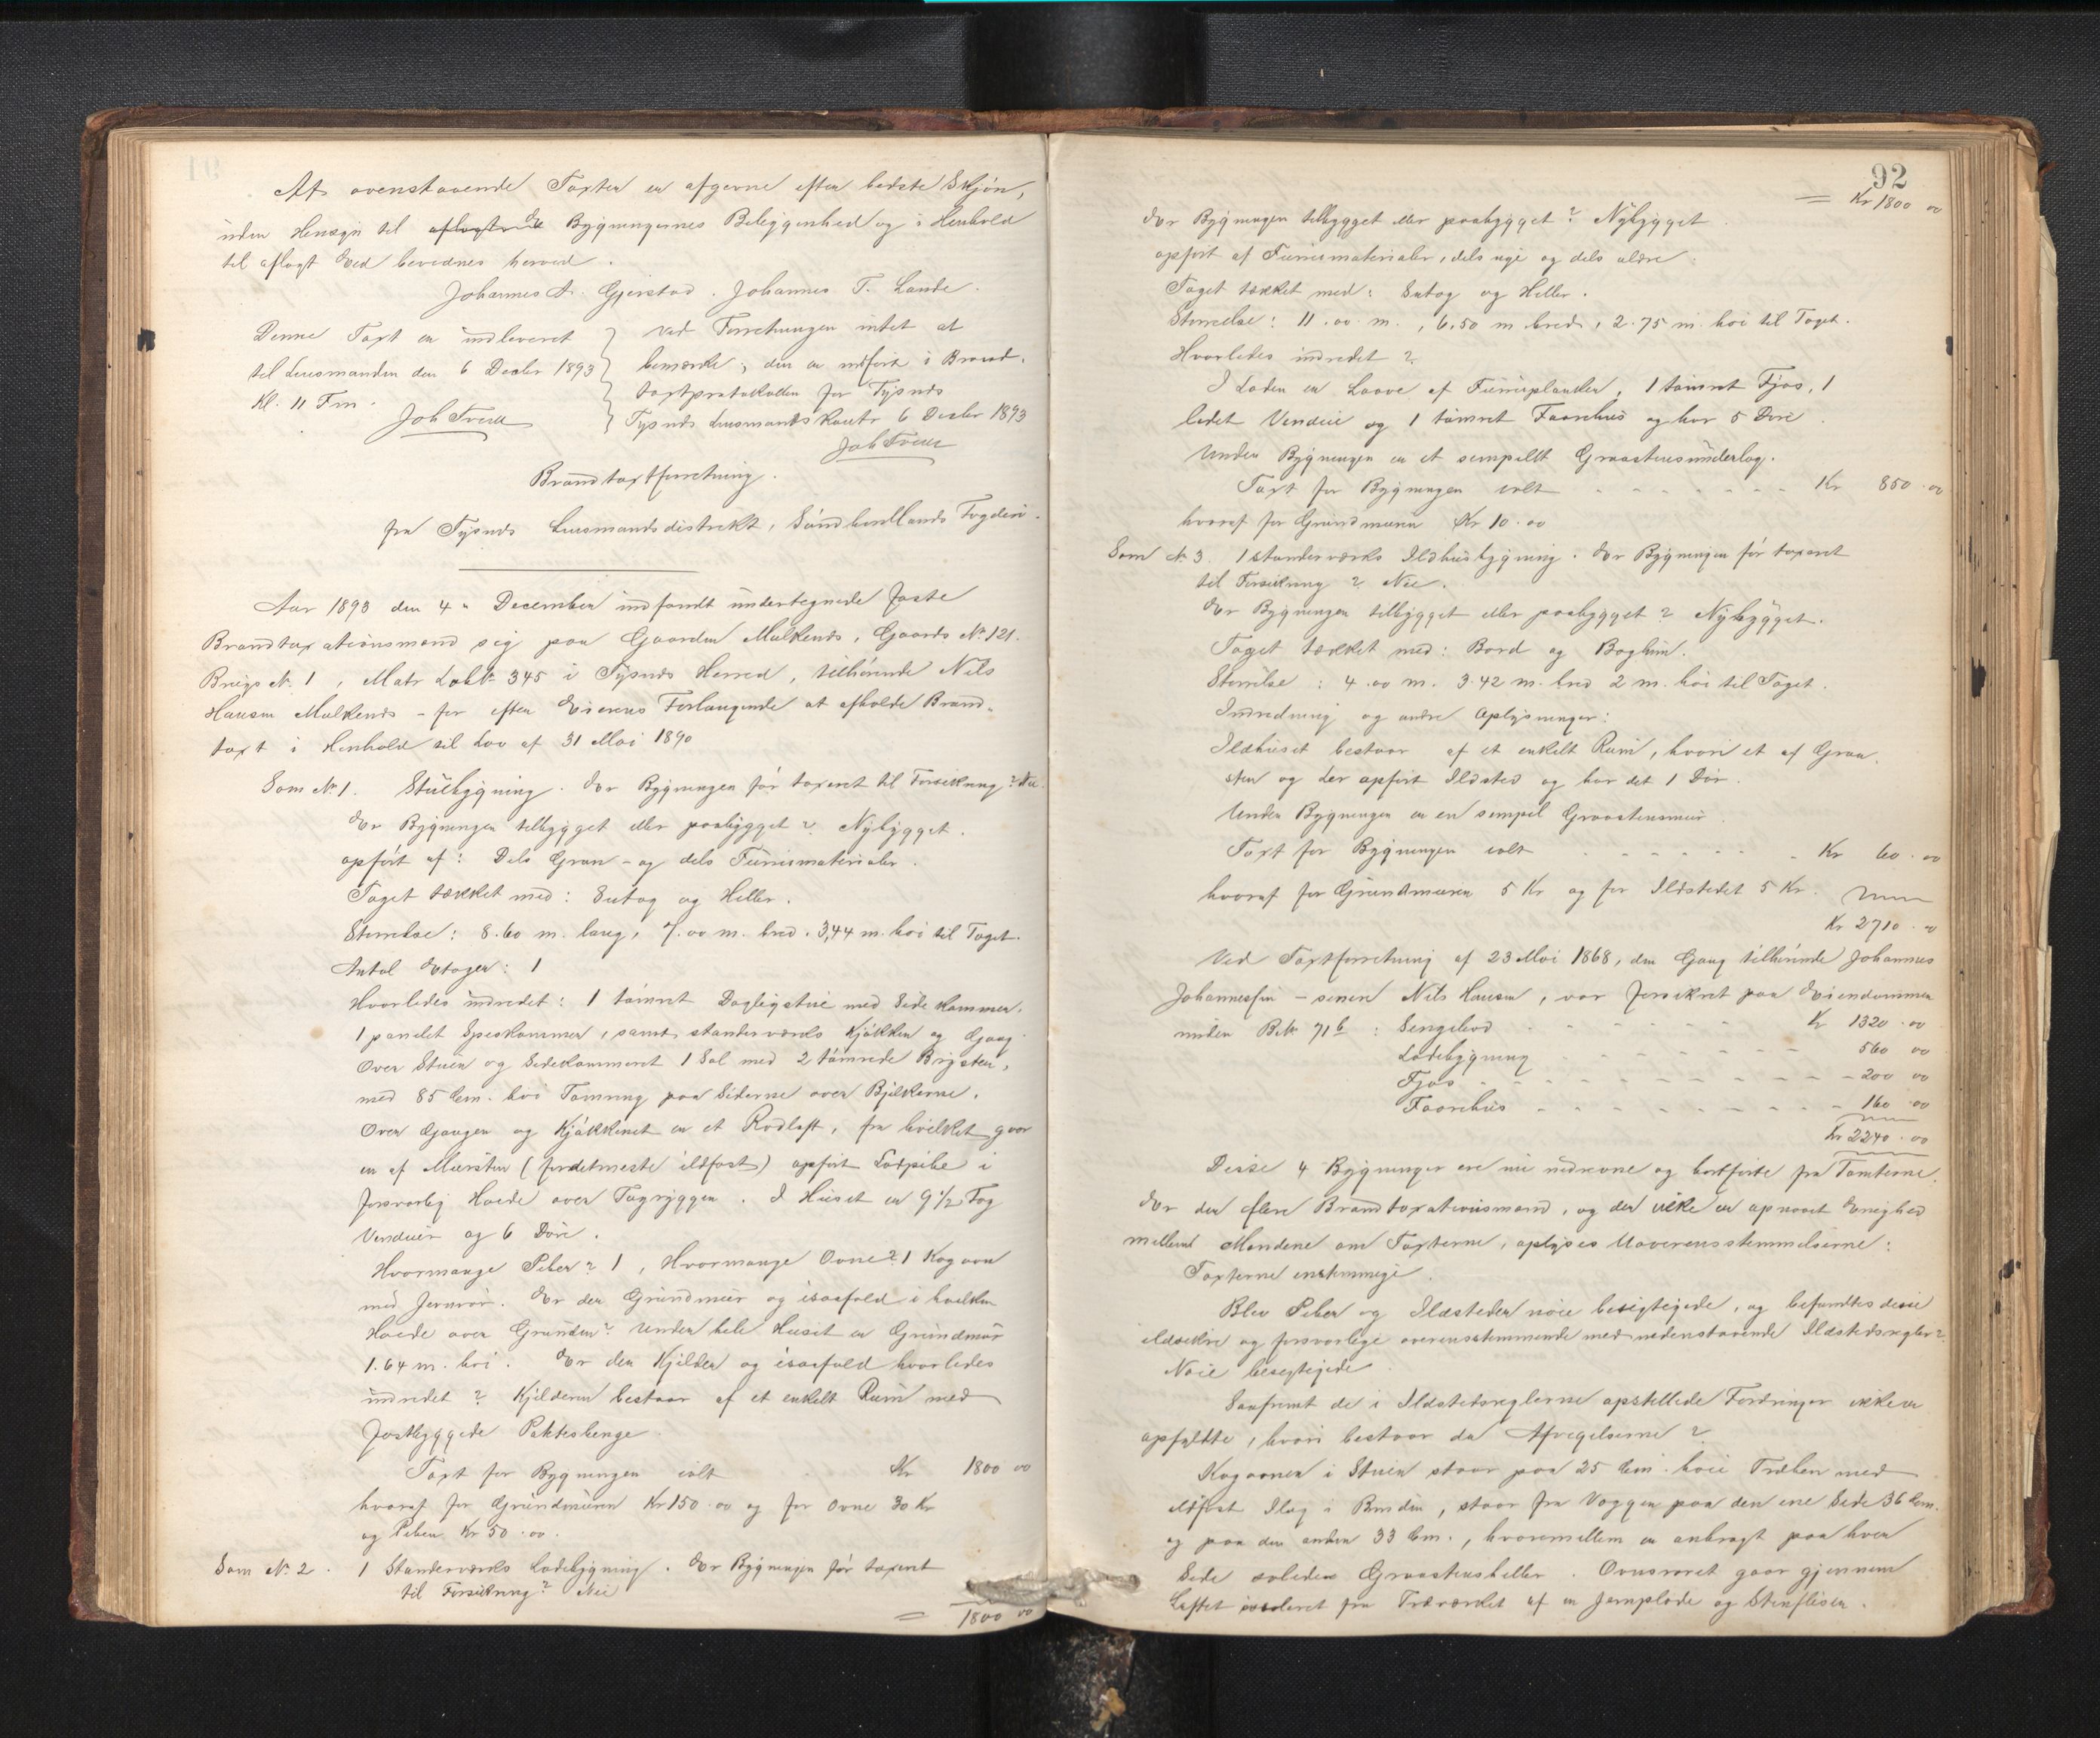 At ovenstaaende Taxter er afgivne efter bedste Skjøn,
uden Hensyn til aflagt Ed Bygningernes Beliggenhed og i Henhold
til aflagt Ed bevidnes herved.
Johannes A. Gjerstad. Johannes T. Lande.
Denne Taxt er indleveret
til Lensmanden den 6 Decbr 1893
Kl. 11 Fm.
Joh Træe
Ved Forretningen intet at
bemærke; den er indført i Brand-
taxtprotokollen for Tysnes
Tysnes Lensmandskontr 6 Decbr 1893
Joh Træe
Brandtaxtforretning.
fra Tysnes Lensmandsdistrikt, Søndhordlands Fogderi.
Aar 1893 den 4de December indfandt undertegnede faste
Brandtaxationsmænd sig paa Gaarden Malkenes, Gaards No 121.
Brugs No. 1, Matr Løbno 345 i Tysnes Herred, tilhørende Nils
Hansen Malkenes - for efter Eierens Forlangende at afholde Brand-
taxt i Henhold til Lov af 31 Mai 1890
Som No 1. Stuebygning. Er Bygningen før taxeret til Forsikring? Nei.
Er Bygningen tilbygget eller paabygget? Nybygget.
opført af: Dels Gran- og dels Furumaterialer.
Taget tækket med: Sutag og Heller.
Størrelse: 8.60 m. lang, 7.00 m. bred. 3,44 m. høi til Taget.
Antal Etager: 1
Hvorledes indredet: 1 tømret Dagligstue med Sidekammer.
1 panelet Speskammer, samt standerværks Kjøkken og Gang.
Over Stuen og Sidekammeret 1 Sal med 2 tømrede Bryster,
med 85 Cm. høi Tømring paa Siderne over Bjelkerne.
Over Gangen og Kjøkkenet er et Rodloft, fra hvilket gaar
en af Mursten (fordetmeste ildfast) opført Lodpibe i
forsvarlig Høide over Tagryggen. I Huset er 9 1/2 Fag
Venduer og 6 Døre.
Hvormange Piber? 1, Hvormange Ovne? 1 Kogovn
med Jernrør. Er der Grundmur og isaafald i hvilken
Høide over Grunden? Under hele Huset er Grundmur
1.64 m. høi. Er der Kjelder og isaafald hvorledes
indredet? Kjelderen bestaar af et enkelt Rum med
fastbyggede
Taxt for Bygningen ialt Kr 1800 00
hvoraf for Grundmuren Kr 150.00 og for Ovne 30 Kr
og Piben Kr 50.00.
Som No 2. 1 Standerværks Ladebygning. Er Bygningen før taxeret
til Forsikring? Nei
= 1800 00
92
= Kr 1800 00
Er Bygningen tilbygget eller paabygget? Nybygget.
opført af Furumaterialer, dels nye og dels ældre.
Taget tækket med: Sutag og Heller.
Størrelse: 11.00 m., 6.50 m bred, 2.75 m. høi til Taget.
Hvorledes indredet?
I Laden er Laave af Furuplanker, 1 tømret Fjøs, 1
lidet Vendue og 1 tømret Faarehus og har 5 Døre.
Under Bygningen er et simpellt Graastensunderlag.
Taxt for Bygningen ialt Kr 850.00
hvoraf for Grundmuren Kr 10.00
Som No 3. 1 standerværks Ildhusbygning. Er Bygningen før taxeret
til Forsikring? Nei.
Er Bygningen tilbygget eller paabygget? Nybygget.
Taget tækket med: Bord og
Størrelse: 4.00 m. 3.42 m. bred 2 m. høi til Taget.
Indredning og andre Oplysninger:
Ildhuset bestaar af et enkelt Rum, hvori et af Graa-
sten og Ler opført Ildsted og har det 1 Dør.
Under Bygningen er en simpel Graastensmur
Taxt for Bygningen ialt Kr 60.00
hvoraf for Grundmuren 5 Kr og for Ildstedet 5 Kr.
Kr 2710.00
Ved Taxtforretning af 23 Mai 1868, den Gang tilhørende Johannes
Johannessen - senere Nils Hansen, var forsikret paa Eiendommen
under B.No 71b: Sengebod Kr 1320.00
Ladebygning 560 00
Fjøs 200 00
Faarehus 160.00
Kr 2240.00
Disse 4 Bygninger ere nu nedrevne og bortførte fra Tomterne.
Er der flere Brandtaxationsmænd, og der ikke er opnaaet Enighed
mellem Mændene om Taxterne, oplyses Uoverensstemmelserne:
Taxterne enstemmige.
Blev Piber og Ildsteder nøie besigtigede, og befandtes disse
ildsikre og forsvarlige overensstemmende med nedenstaaende Ildstedsregler?
Nøie besigtigede
Saafremt de i Ildstedsreglerne opstillede Fordringer ikke er
opfyldte, hvori bestaar da Afvigelserne?
Kogovnen i Stuen staar paa 25 Cm. høie Træben med
ildfast Ilag i Bunden, staar fra Væggen paa den ene Side 36 Cm.
og paa den anden 33 Cm., hvoremellem er anbragt paa hver
Side Graastensheller. Ovnsrøret gaar gjennem
Loftet isoleret fra Træværket af en Jernplade og Stenfliser.